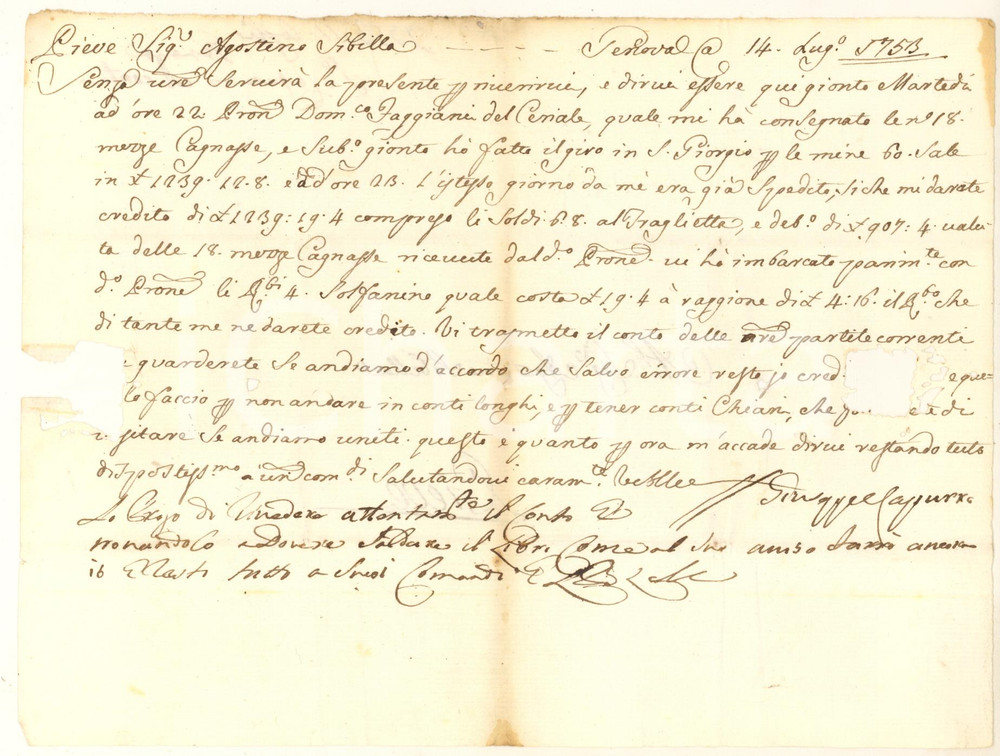 Pieve Sig.r Agostino Sibilla - - - - Genova a 14. Lug.o 1753
Senza vre Seruirà la presente p riuerirui, e dirui essere qui gionto Martedì
ad ore 22. Prone Dom.co Faggiani del Ceriale, quale mi hà consegnato le n.o 18.
mezze Cagnasse, e Sub.o gionto hò fatto il giro in S. Giorgio p le mine 60. Sale
in £ 1239. 12. 8. e ad ore 23. l'istesso giorno da mè era già Spedito, si che mi darete
credito di £ 1239: 19. 4 compreso li Soldi 6. 8. al Fraglietta, e deb.o di £ 907: 4. valu-
ta delle 18. mezze Cagnasse riceuute dal d.o Prone. vi hò imbarcato parim.te con
d.o Prone li Rbi 4. Solfanino quale costa £ 19. 4 à raggione di £ 4: 16. il Rbo che
di tante me ne darete credito. Vi trasmetto il conto delle nre partite correnti
e guarderete Se andiamo d'accordo che Saluo errore resto io cred e que-
lo faccio p non andare in conti longhi, e p tener conti Chiari, che di
sitare Se andiamo uniti. questo è quanto p ora m'accade dirui restando tutto
dispostiss.mo a vri com.di Salutandoui caram.te
Giuseppe Cappurro
Lo Prego di Vuedere il Conto Et
a Douere Saldare il Come al Suo auiso Sarrò ancora
io E Resti tutto a Suoi Comandi E